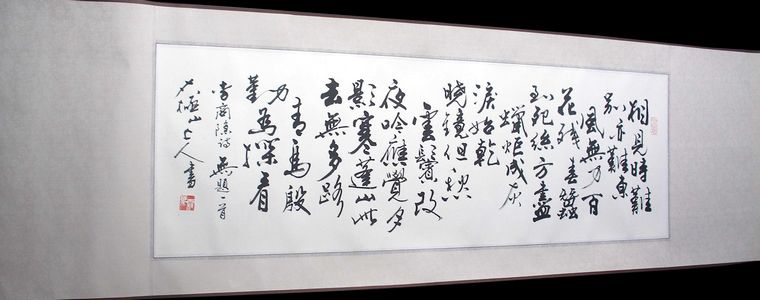 相見時難
別亦難東
風無力百
花殘春蠶
到死絲方盡
蠟炬成灰
淚始乾
曉鏡但愁
雲鬢改
夜吟應覺月
影寒蓬山此
去無多路
青鳥殷
勤為探看
李商隱詩無題一首
極山人書